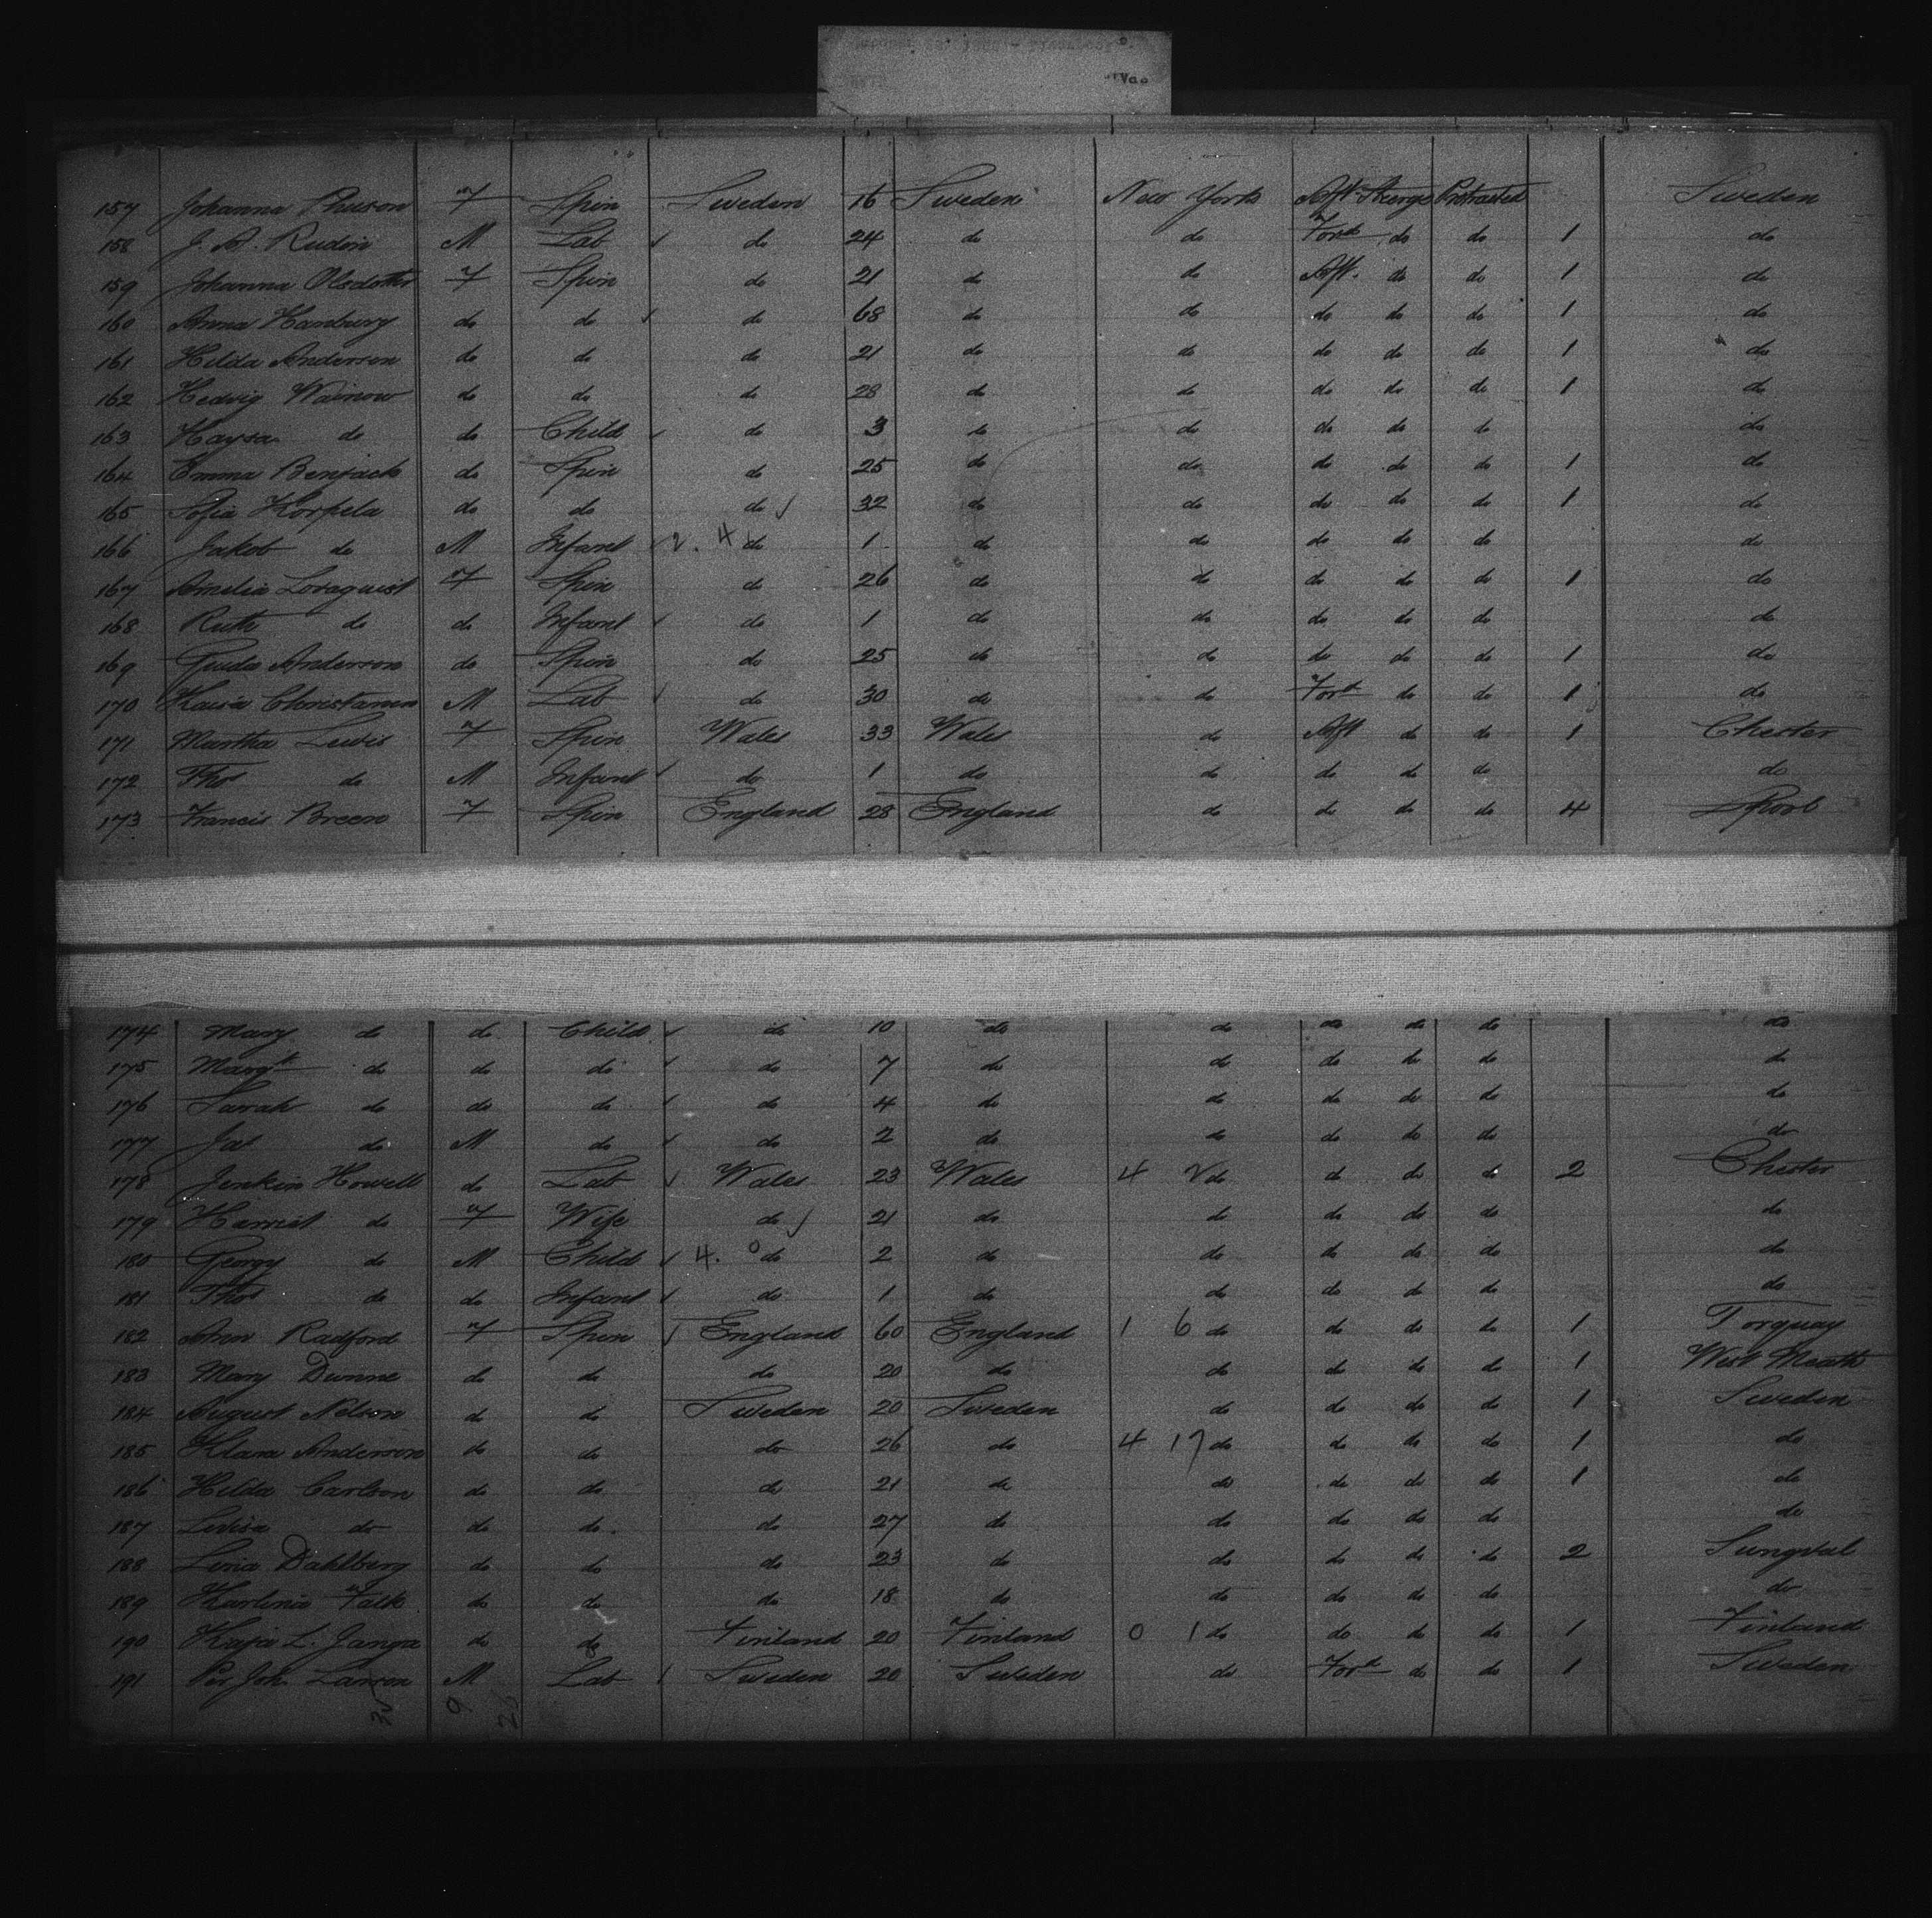 157 Johanna F Spin Sweden 16 Sweden New York Aft Steerge Protracted Sweden
158 J. A. Rudin M Lab do 24 do do Ford do do 1 do
159 Johanna Olsdotter F Spin do 21 do do Aft. do do 1 do
160 Anna Hanburg do do do 68 do do do do do 1 do
161 Hilda Anderson do do do 21 do do do do do 1 do
162 Hedvig Wainow do do do 28 do do do do do 1 do
163 Kaysa do do Child do 3 do do do do do do
164 Emma Benjack do Spin do 25 do do do do do 1 do
165 Sofia Korpela do do do 32 do do do do do 1 do
166 Jakob do M Infant 2. 4 do 1 do do do do do do
167 Amelia Lovaquist F Spin do 26 do do do do do 1 do
168 Ruth do do Infant do 1 do do do do do do
169 Anderson do Spin do 25 do do do do do 1 do
170 Kaisa Christanen M Lab do 30 do do Ford do do 1 do
171 Martha Lewis F Spin Wales 33 Wales do Aft do do 1 Chester
172 Thos do M Infant do 1 do do do do do do
173 Francis Breen F Spin England 28 England do do do do 4 Lpool
174 Mary do do Child do 10 do do do do do do
175 Margt do do do do 7 do do do do do do
176 Sarah do do do do 4 do do do do do do
177 Jas do M do do 2 do do do do do do
178 Jenkin Howell do Lab Wales 23 Wales 4 2 do do do do 2 Chester
179 Harriet do F Wife do 21 do do do do do do
180 Georgy do M Child 4. 0 do 2 do do do do do do
181 Thos do do Infant do 1 do do do do do do
182 Ann Radford F Spin England 60 England 1 6 do do do do 1 Torquay
183 Mary Dunne do do do 20 do do do do do 1 West Meath
184 August Nelson do do Sweden 20 Sweden do do do do 1 Sweden
185 Klara Anderson do do do 26 do 4 17 do do do do 1 do
186 Hilda Carlson do do do 21 do do do do do 1 do
187 Lovisa do do do do 27 do do do do do do
188 Lina Dahlberg do do do 23 do do do do do 2
189 Karlina Falk do do do 18 do do do do do do
190 Kaja L. Janga do do Finland 20 Finland 0 1 do do do do 1 Finland
191 Per Joh. Larson M Lab Sweden 20 Sweden do Ford do do 1 Sweden
9 26